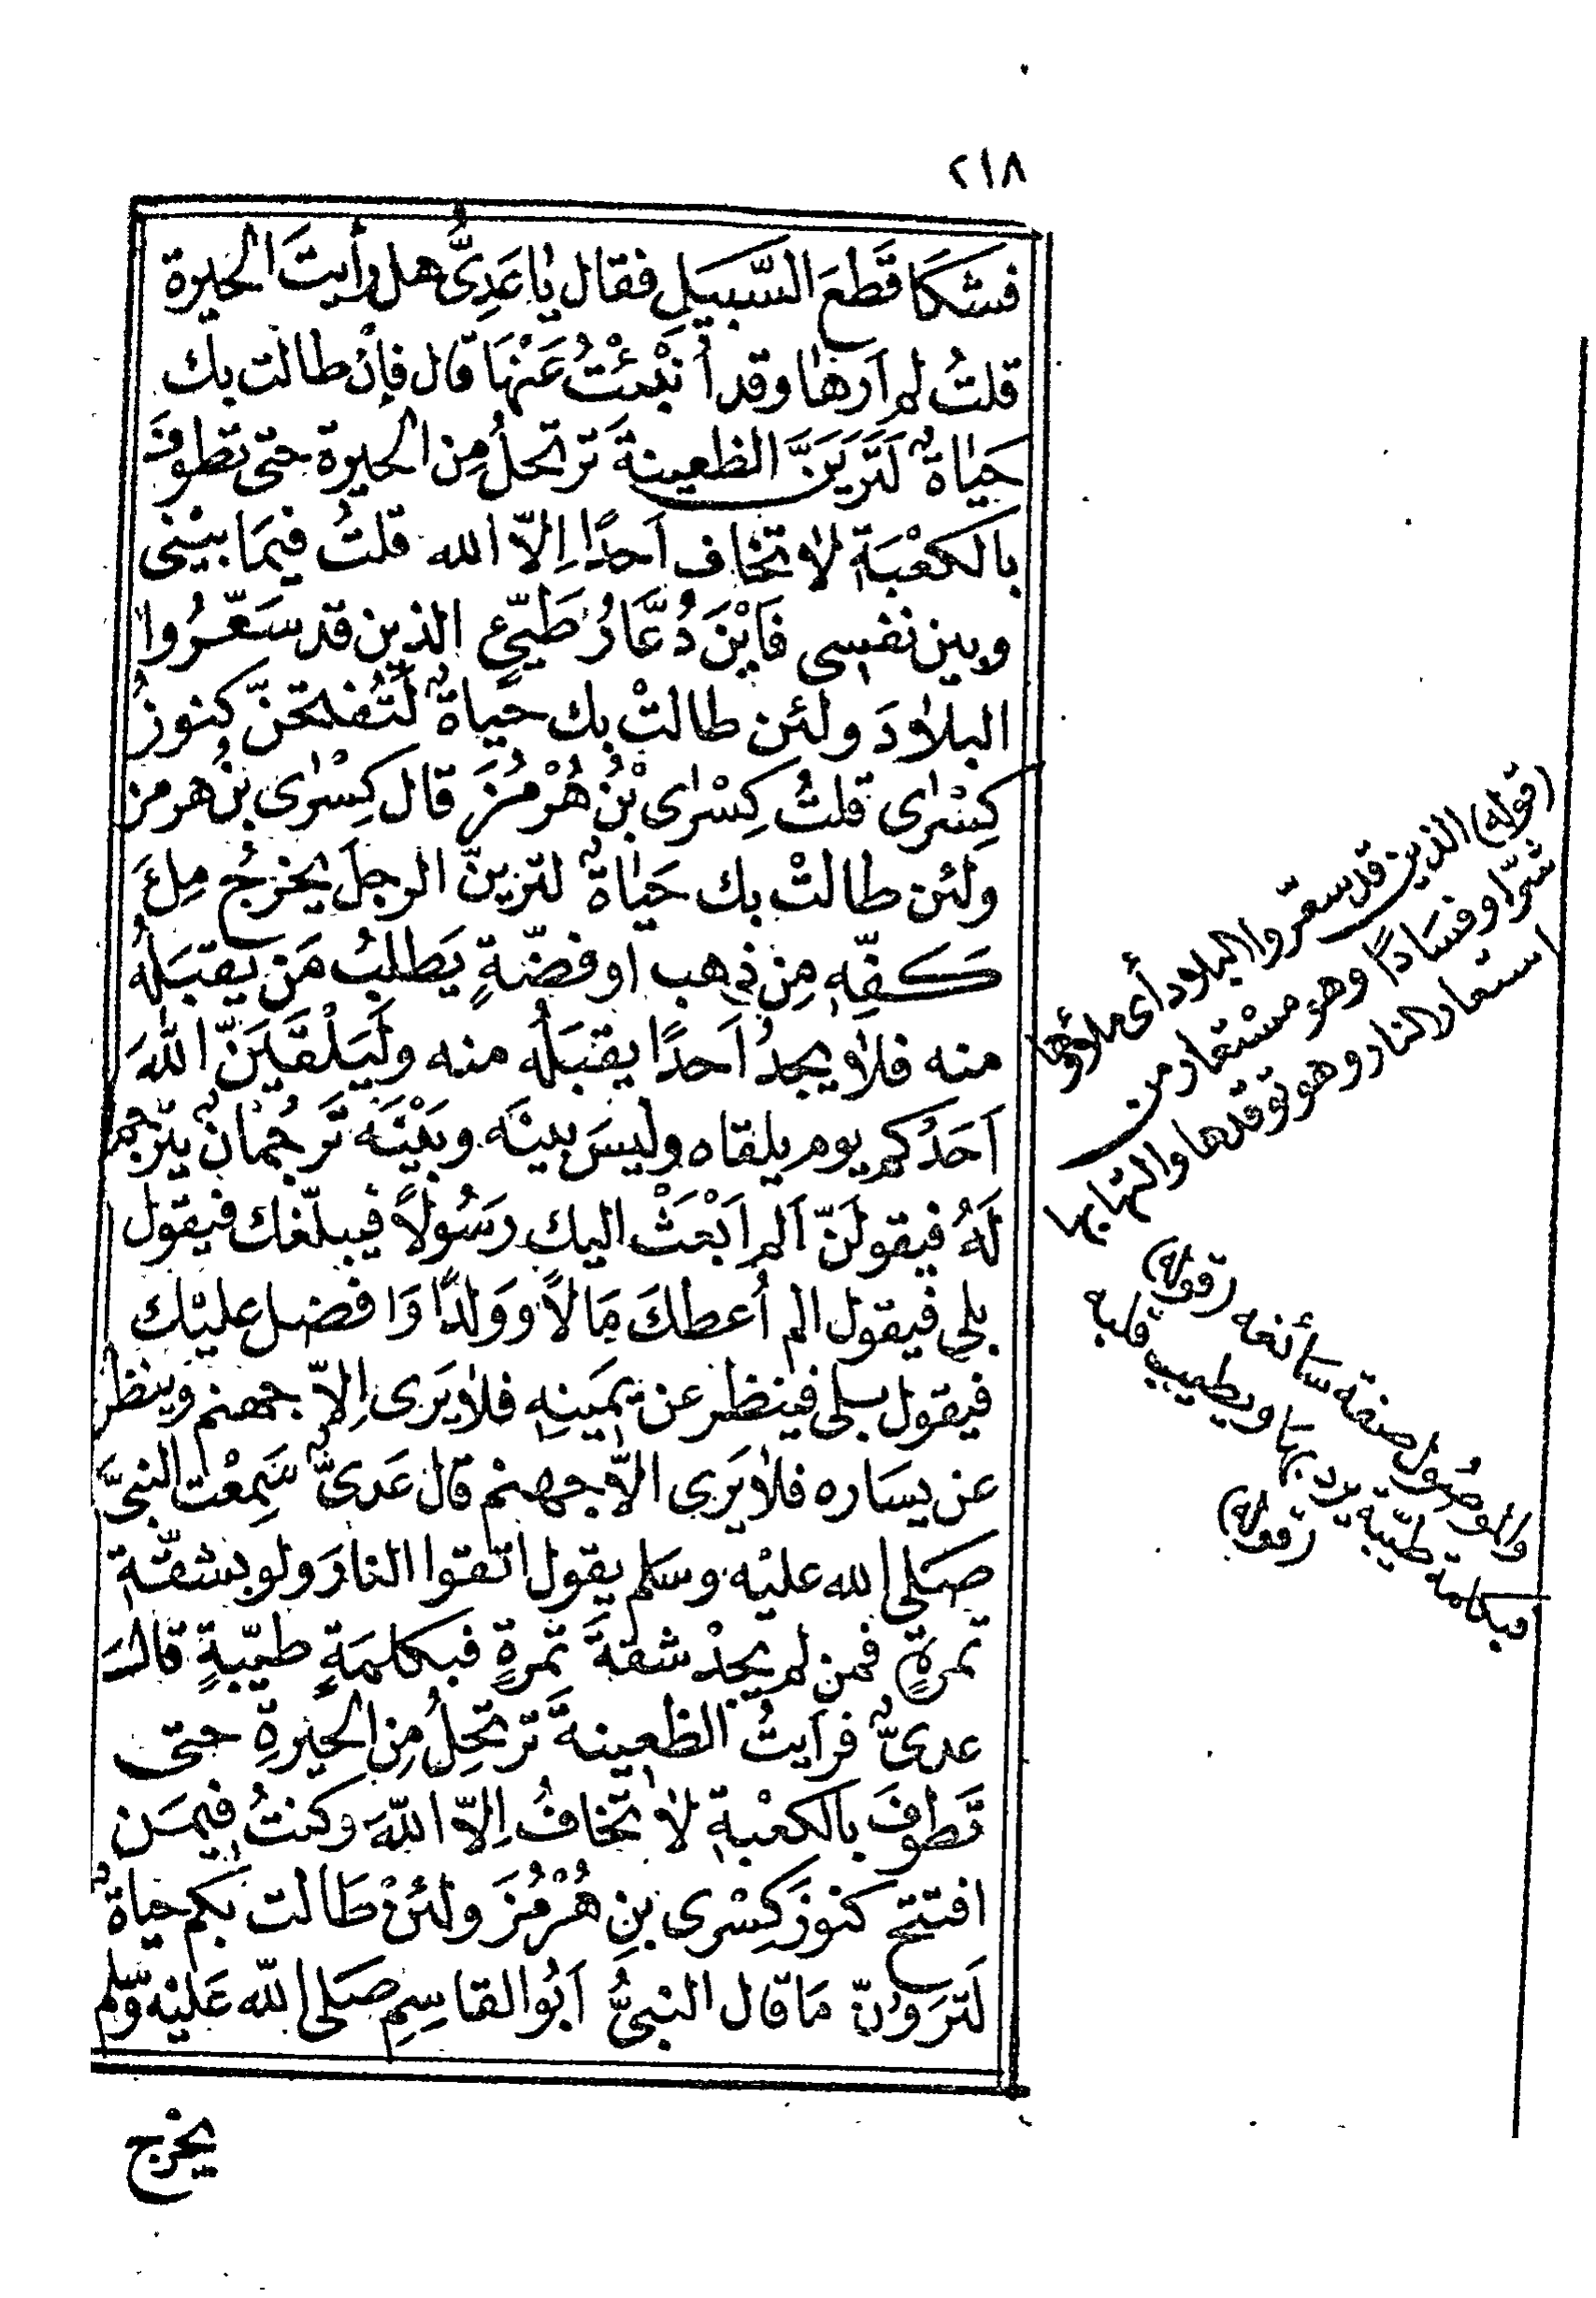 ٢١٨
فشَكَا قَطعَ السَّبيلِ فقال يٰا عَدِىُّ هل رأيتَ الحيرة
قلتُ لم اَرهٰا وقد اُنْبِئْتُ عَنْهَا قال فإنْ طالت بك
حَيٰاةٌ لَتَرَيَنَّ الظعينةَ ترتحلُ مِن الحيرة حتى تطوفَ
بالكعْبَةِ لاٰ تخاف اَحدًا اِلاّ الله قلتُ فيمَا بيْنى
وبين نفسِى فَاَيْنَ دُعَّارُ طَيّئٍ الذين قد سَعّرُوا
البلاٰدَ ولئن طالتْ بك حَياةٌ لَتُفتحَنّ كنوزُ
كِسْرٰى قلتُ كِسْرٰى بْنُ هُرْمُزَ قال كِسْرٰى بنُ هرمز
ولئن طالتْ بك حَيٰاةٌ لترينّ الرجلَ يخرُج مِلءَ
كَفّهِ مِن ذهب او فضّةٍ يَطلبُ مَن يَقبَلُهُ
منه فلاٰ يجدُ اَحدًا يقبَلُه منه ولَيَلْقَيَنّ اللهَ
اَحَدُكم يوم يلقاه وليسَ بينَه وبَيْنَه تَرجُمانٌ يترجم
لَهُ فيقولَنّ اَلم اَبْعَثْ اليك رَسُولاً فيبلّغك فيقول
بلى فيقول الم اُعطكَ مَالاً وَوَلدًا وَافضل عليْك
فيقول بلى فينظر عن يَمينِهِ فلاٰ يَرى اِلاّ جهنم وينظر
عن يسَاره فلاٰ يَرى الاّ جهنم قال عَدىٌّ سَمِعْت النبىَّ
صَلى الله عليْه وسَلم يقول اتّقوا النارَ ولو بشقّةِ
تمرةٍ فمن لم يجدْ شقةَ تمرةٍ فبكلمَةٍ طيّبةٍ قالَ
عدىٌّ فرأيتُ الظعينةَ ترتحِلُ مِن الحيرةِ حتى
تَطوفَ بالكعْبةِ لاٰ تخافُ اِلاّ اللهَ وكنتُ فيمَن
افتتح كنوزَ كِسْرى بنِ هُرْمُزَ ولئنْ طَالت بكم حياةٌ
لَتَرَوُنّ مَا قال النبىُّ اَبُو القاسِمِ صَلى الله عَليْه وسلم
يخرج
(قوله) الذين قد سعّروا البلاد أى ملاؤوها
شرّا وفسَادًا وهو مسْتعار من
استعار النار وهو توقدها والتهابها
(قوله)
فبكلمة طيّبة يرد بهَا ويطيب قلبه
(قوله)